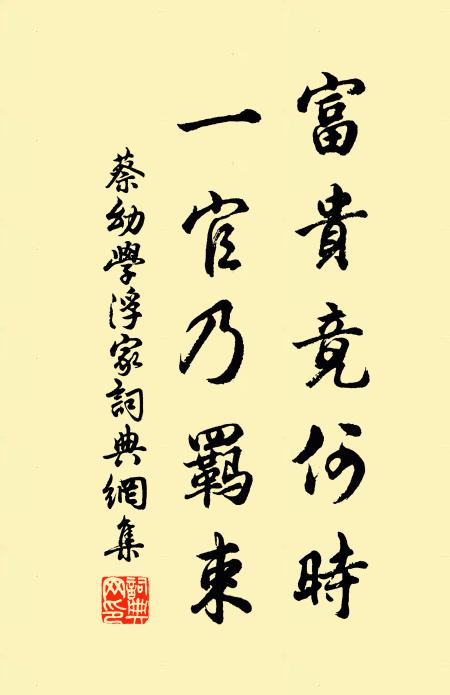 富貴竟何時
一官乃羈束
蔡幼學浮家詞典網集
詞典網印